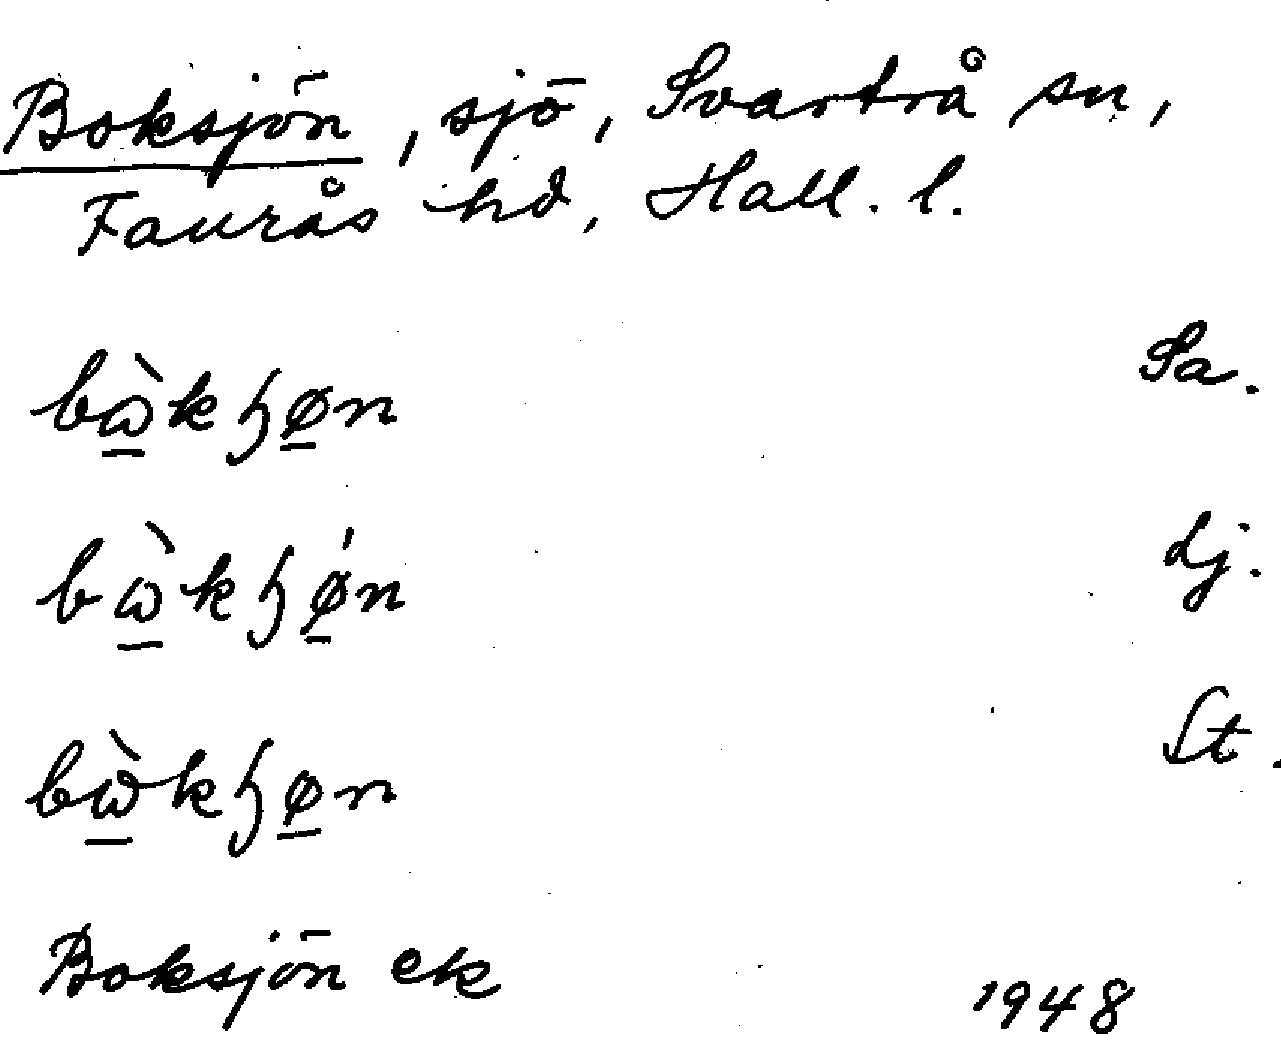 Boksjön, sjö, Svartrå sn,
Faurås hd, Hall. l.
bὼ̲kɧø̲n Sa.
bὼ̲kɧǿ̲n dj.
bὼ̲kɧø̲n St.
Boksjön ek 1948